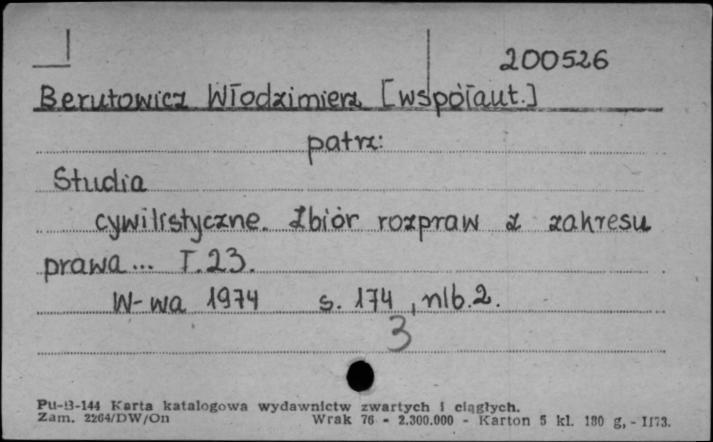 200526
Berutowicz Włodzimierz [współaut.]
patrz:
Studia
cywilistyczne. Zbiór rozpraw z zakresu
prawa... T.23.
W-wa 1974 s. 174, nlb.2.
3
Pu-B-144 Karta katalogowa wydawnictw zwartych i ciągłych.
Zam. 2264/DW/On Wrak 76 - 2.300.000 - Karton 5 kl. 180 g, - 1173.